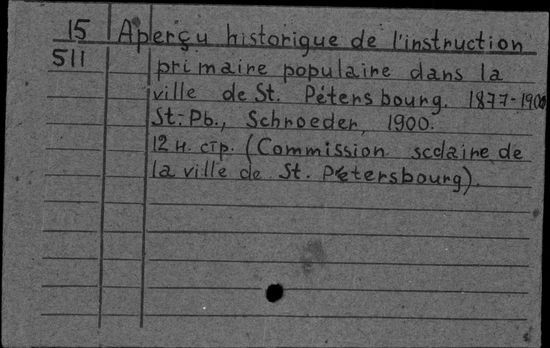 15 Aperçu historique de l'instruction
511 primaire populaire dans la
ville de St. Pétersbourg. 1877-1900
St-Pb., Schroeder, 1900.
12 н. стр. (Commission scolaire de
la ville de St. Pétersbourg).